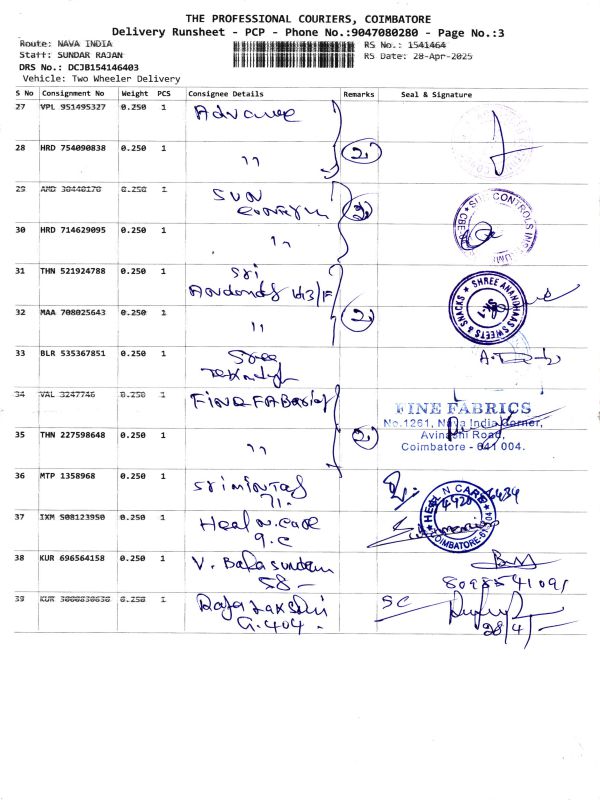 THE PROFESSIONAL COURIERS, COIMBATORE
Delivery Runsheet - PCP - Phone No.:9047080280 - Page No.:3
Route: NAVA INDIA
RS No.: 1541464
Staff: SUNDAR RAJAN
RS Date: 28-Apr-2025
DRS No.: DCJB154146403
Vehicle: Two Wheeler Delivery
S No Consignment No Weight PCS Consignee Details Remarks Seal & Signature
27 VPL 951495327 0.250 1 Advance
28 HRD 754090838 0.250 1 " 2
29 AMD 30448178 0.250 1 SUN
2
SRI CONTROLS
30 HRD 714629095 0.250 1 "
31 THN 521924788 0.250 1 Sri
SHREE ANANDHAAS SWEETS & SNACKS
32 MAA 708025643 0.250 1 " 2
33 BLR 535367851 0.250 1 Sree
34 VAL 3247746 0.250 1 FINE
FINE FABRICS
No.1261, Nava India Corner,
Avinashi Road,
Coimbatore - 641 004.
35 THN 227598648 0.250 1 " 2
36 MTP 1358968 0.250 1
71.
37 IXM 508123950 0.250 1 Heal n. care
9.c
HEAL N CARE
COIMBATORE
38 KUR 696564158 0.250 1 V. Balasundaram
58 -
8098541091
39 KUR 3000830630 0.250 1 Rajalakshmi
G.404.
SC
28/4/